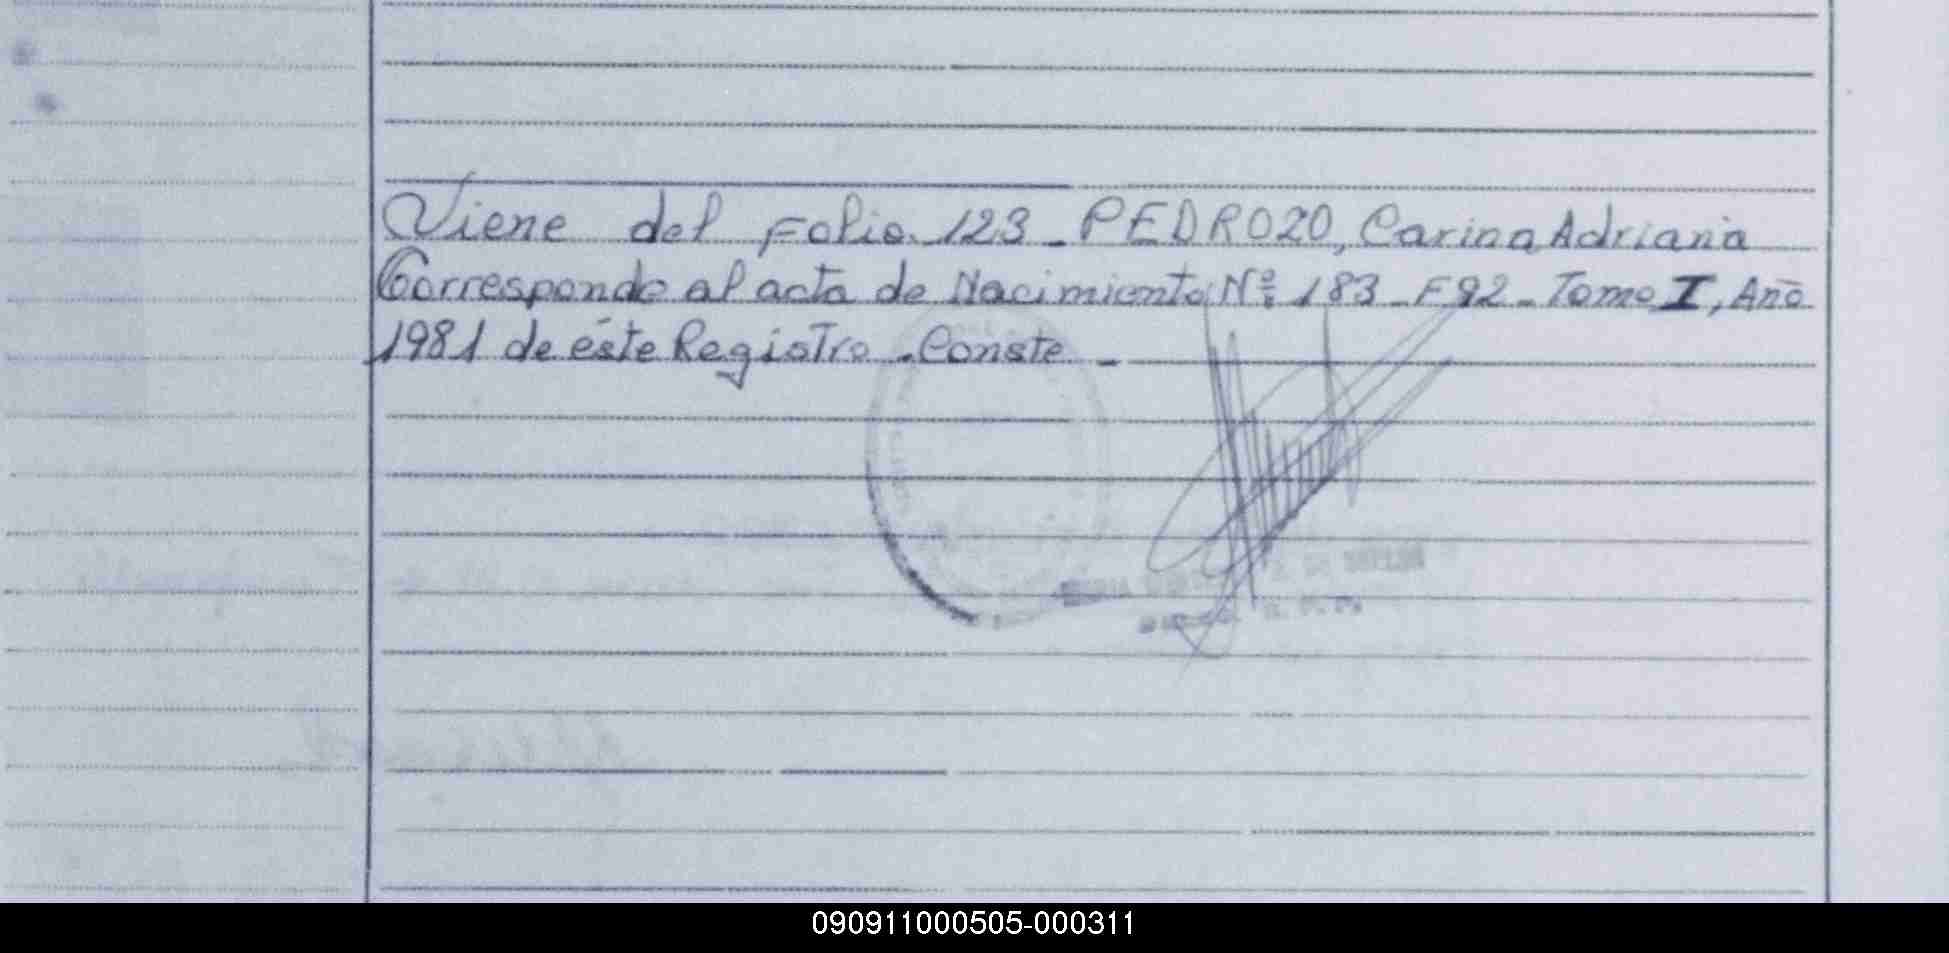 Viene del Folio 123 - PEDROZO, Carina Adriana
Corresponde al acta de Nacimiento Nº 183 - F 92 - Tomo I, Año
1981 de éste Registro - Conste -
090911000505-000311